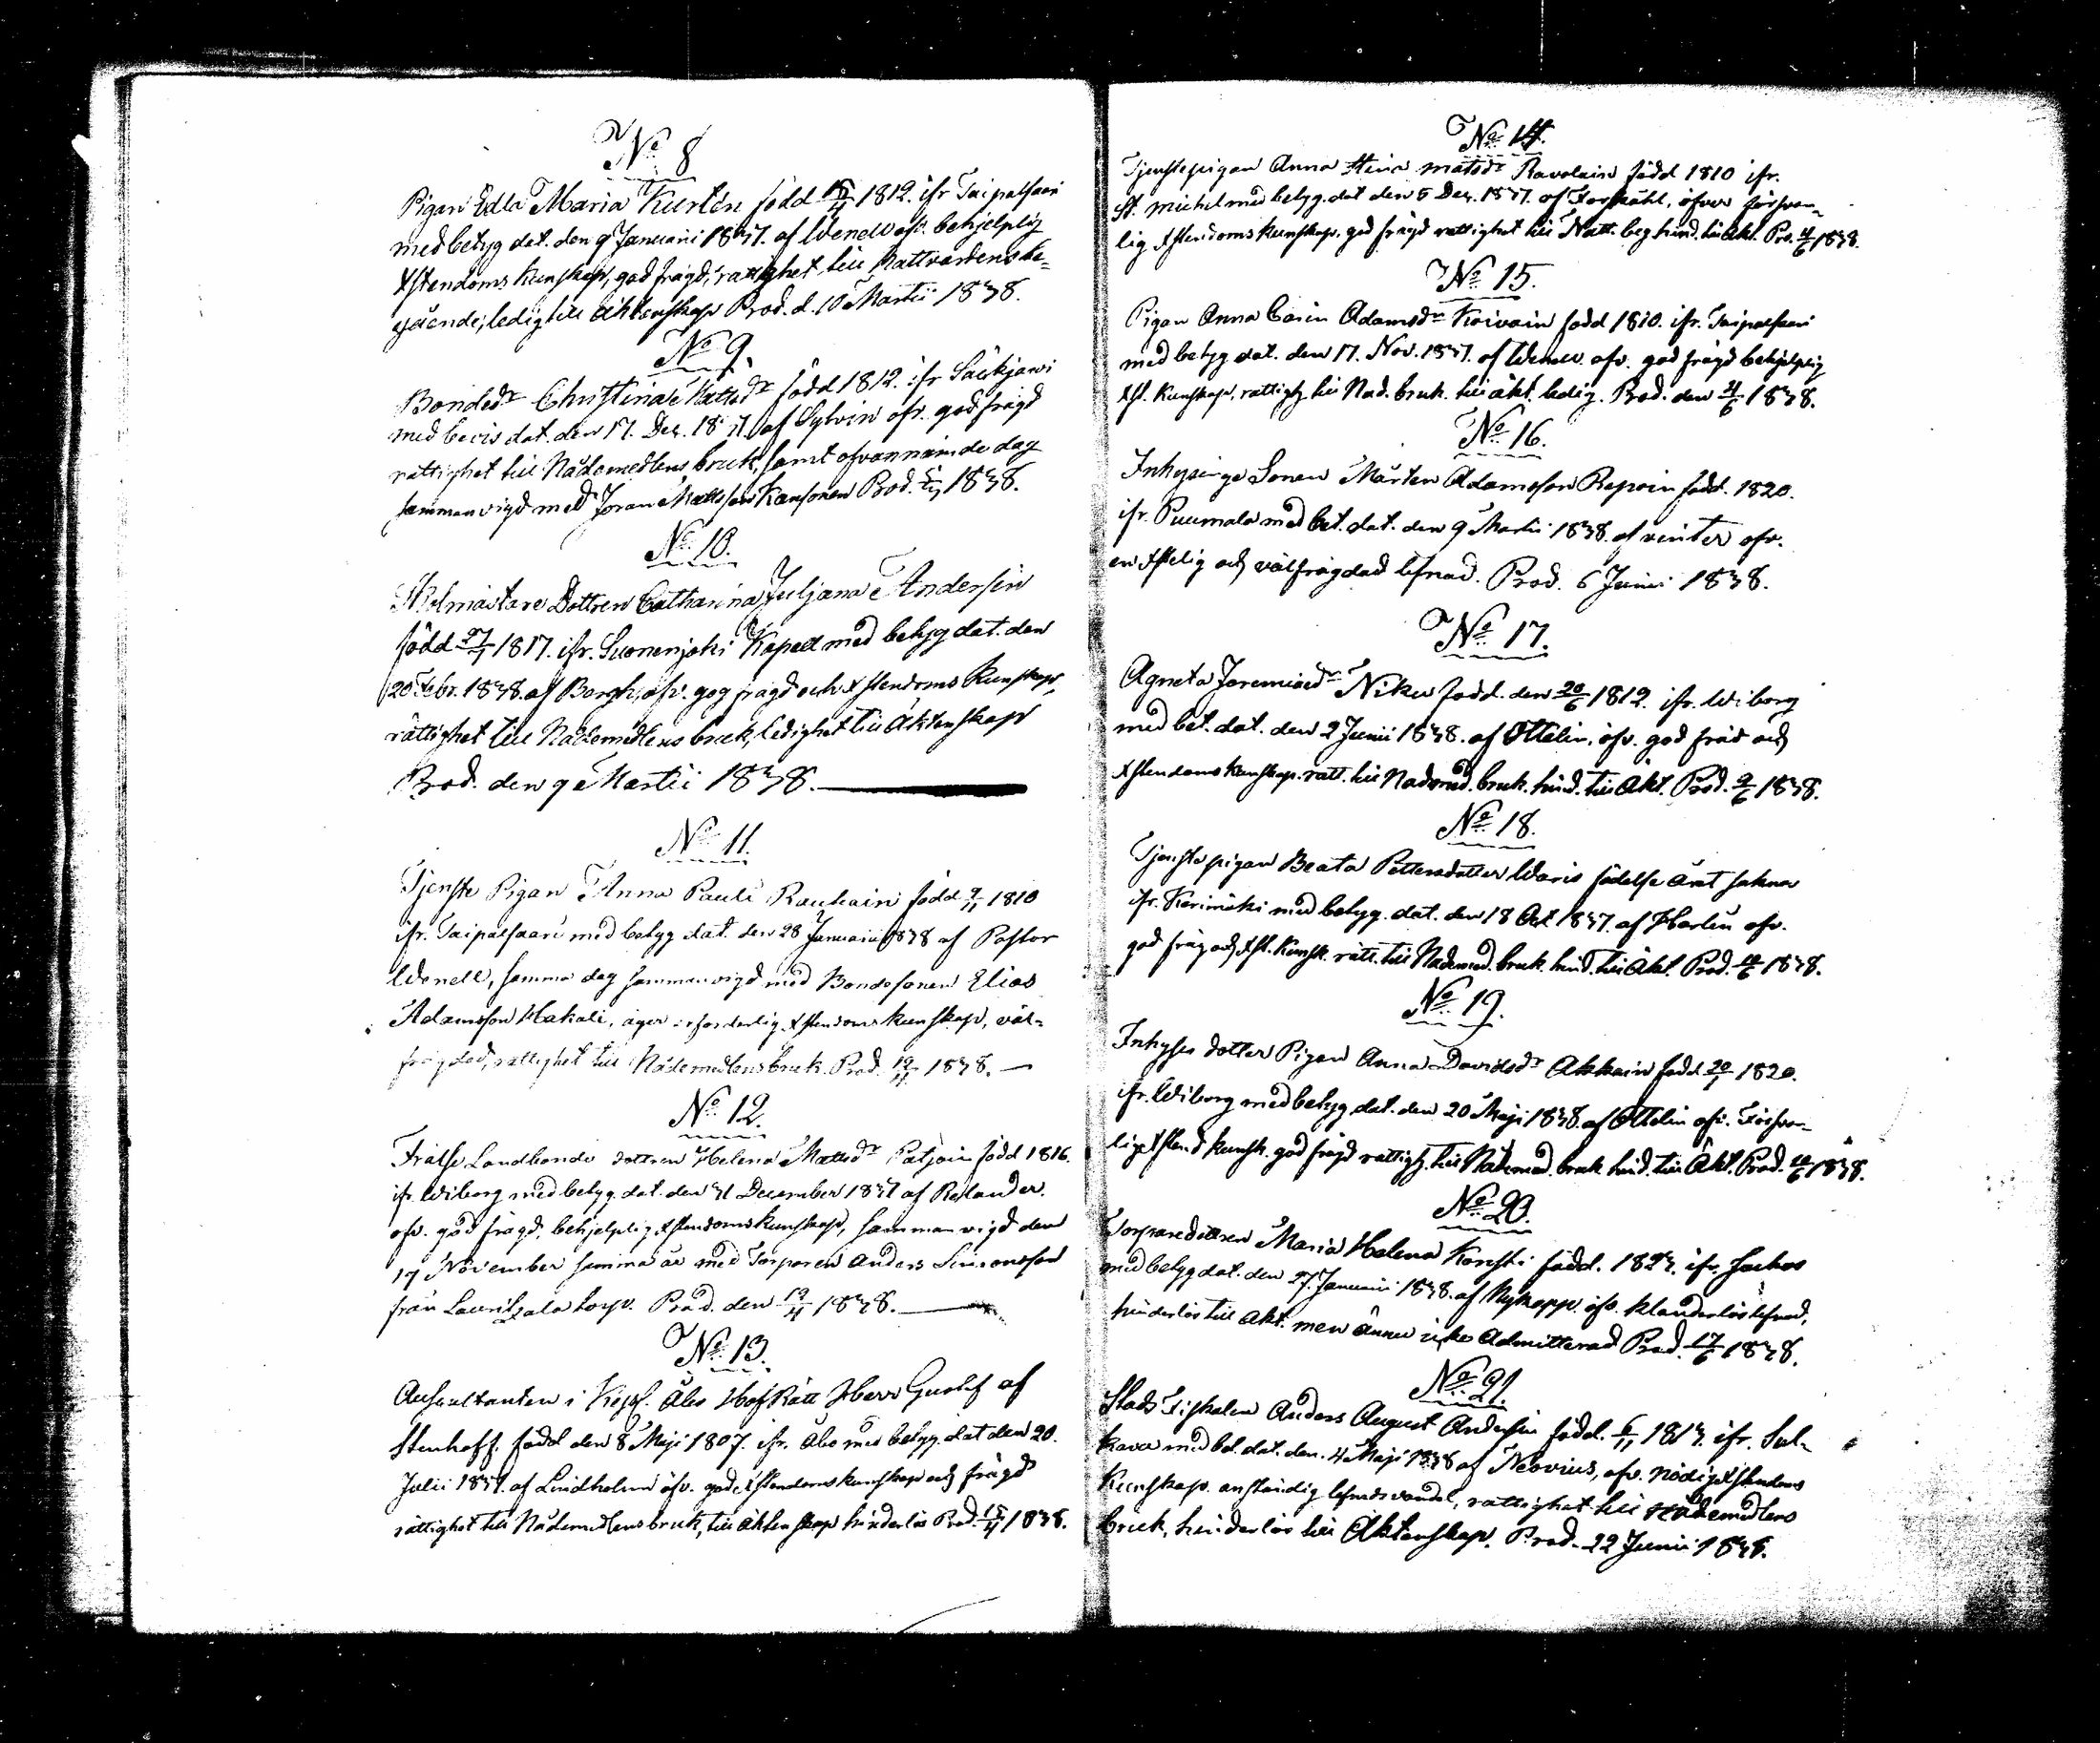 No 8
Pigan Edla Maria Kurtén född 1812. ifr Taipalsaari
med betyg dat. den 9 Januarii 1837. af Wenell öfv. behjelplig
Xstendoms kunskap, god frägd, rättighet till Nattvardens be-
gående, ledig till äktenskap Prod. d. 10 Martii 1838.
No 9.
Bondedr Christina Mattsdr född 1812. ifr Säckjärvi
med bevis dat. den 17. Dec. 1837 af Sylvin öfv. god frägd
rättighet till Nådemedlens bruk, samt ofvannämnde dag
sammanvigd med Jöran Mattsson Kansonen Prod. 1838.
No 10.
Skolmästare Dottren Catharina Juljana Andersin
född 27/1 1817. ifr. Suonenjoki Kapell med betyg dat. den
20 Febr. 1838. af Borgh, öfv. gog frägd och Xstendoms kunskap,
rättighet till Nådemedlens bruk, ledighet till Äktenskap
Prod. den 9 Martii 1838.
No 11.
Tjenste Pigan Anna Pauli Rauhain född 9/11 1810
ifr. Taipalsaari med betyg dat. den 28 Januarii 1838 af Pastor
Wenell, samma dag sammanvigd med Bondesonen Elias
Adamsson Hakali, äger erforderlig Xstendoms kunskap, väl-
frägdad, rättighet till Nådemedlens bruk. Prod. 12/4 1838.
No 12.
Frälse Landbonde dottren Helena Mattsdr Patjain född 1816.
ifr. Wiborg med betyg dat. den 31 December 1837 af Relander.
öfv. god frägd, behjelplig Xstendoms kunskap, samman vigd den
17 November samma år med Torparen Anders Simonsson
från Lauritsala torp. Prod. den 12/4 1838.
No 13.
Auscultanten i Kejs. Åbo HofRätt Herr Gustaf af
Stenhoff. född den 8 Maji 1807. ifr. Åbo med betyg dat den 20.
Julii 1837. af Lindholm öfv. god Xstendoms kunskap och frägd
rättighet till Nådemedlens bruk, till äktenskap hinderlös Prod. 15/4 1838.
No 14.
Tjenstepigan Anna Stina Matsdr Ravolain född 1810 ifr.
St. Michel med betyg. dat den 5 Dec. 1837. af Forstahl, öfver försvar-
lig Xstendoms kunskap, god frägd rättighet till Natt. beg. hind. till Äkt. Pro. 4/6 1838.
No 15.
Pigan Anna Carin Adamsdr Koivain född 1810. ifr. Taipalsaari
med betyg dat. den 17. Nov. 1837. af Wenell. öfv. god frägd behjelplig
Xst. kunskap, rättigh till Nåd. bruk. till äkt. ledig. Prod. den 4/6 1838.
No 16.
Inhysinge Sonen Mårten Adamsson Repoin född. 1820.
ifr. Puumala med bet. dat. den 9 Martii 1838. af Winter öfv.
en Xstelig och välfrägdad lefnad. Prod. 6 Junii 1838.
No 17.
Agneta Jeremiedr Niku född. den 20/6 1812. ifr. Wiborg
med bet. dat. den 2 Junii 1838. af Ottelin. öfv. god fräd och
Xstendoms kunskap. rätt. till Nådemed. bruk. hind. till Äkt. Prod. 9/6 1838.
No 18.
Tjenstepigan Beata Pettersdotter Waris födelse året saknar
ifr. Kerimäki med betyg. dat. den 18 Oct 1837. af Harlin öfv.
god fräg och Xst. kunsk. rätt. till Nådemed. bruk. hind. till Äkt. Prod. 10/6 1838.
No 19.
Inhyses dotter Pigan Anna Davidsdr Akkain född 20/1 1820.
ifr. Wiborg med betyg dat. den 20 Maji 1838. af Ottelin öfv. Försvar-
lig Xstend kunsk. god frägd rättigh. till Nådemed. bruk hind. till Äkt. Prod. 10/6 1838.
No 20.
Torparedottren Maria Helena Konsti född. 1823. ifr. Jockas
med betyg dat. den 27. Januarii 1838. af Nykopp. öfv. klanderlös lefnad,
hinderlös till Äkt. men ännu icke Admitterad Prod. 17/6 1838.
No 21.
Stads Fiskalen Anders August Andersin född. 6/11 1813. ifr. Sul-
kava med bet. dat. den. 4 Maji 1838 af Neovius, öfv. nödig Xstendoms
kunskap. anständig lefnadsvandel, rättighet till Nådemedlens
bruk, hinderlös till Äktenskap. Prod. 22 Junii 1838.